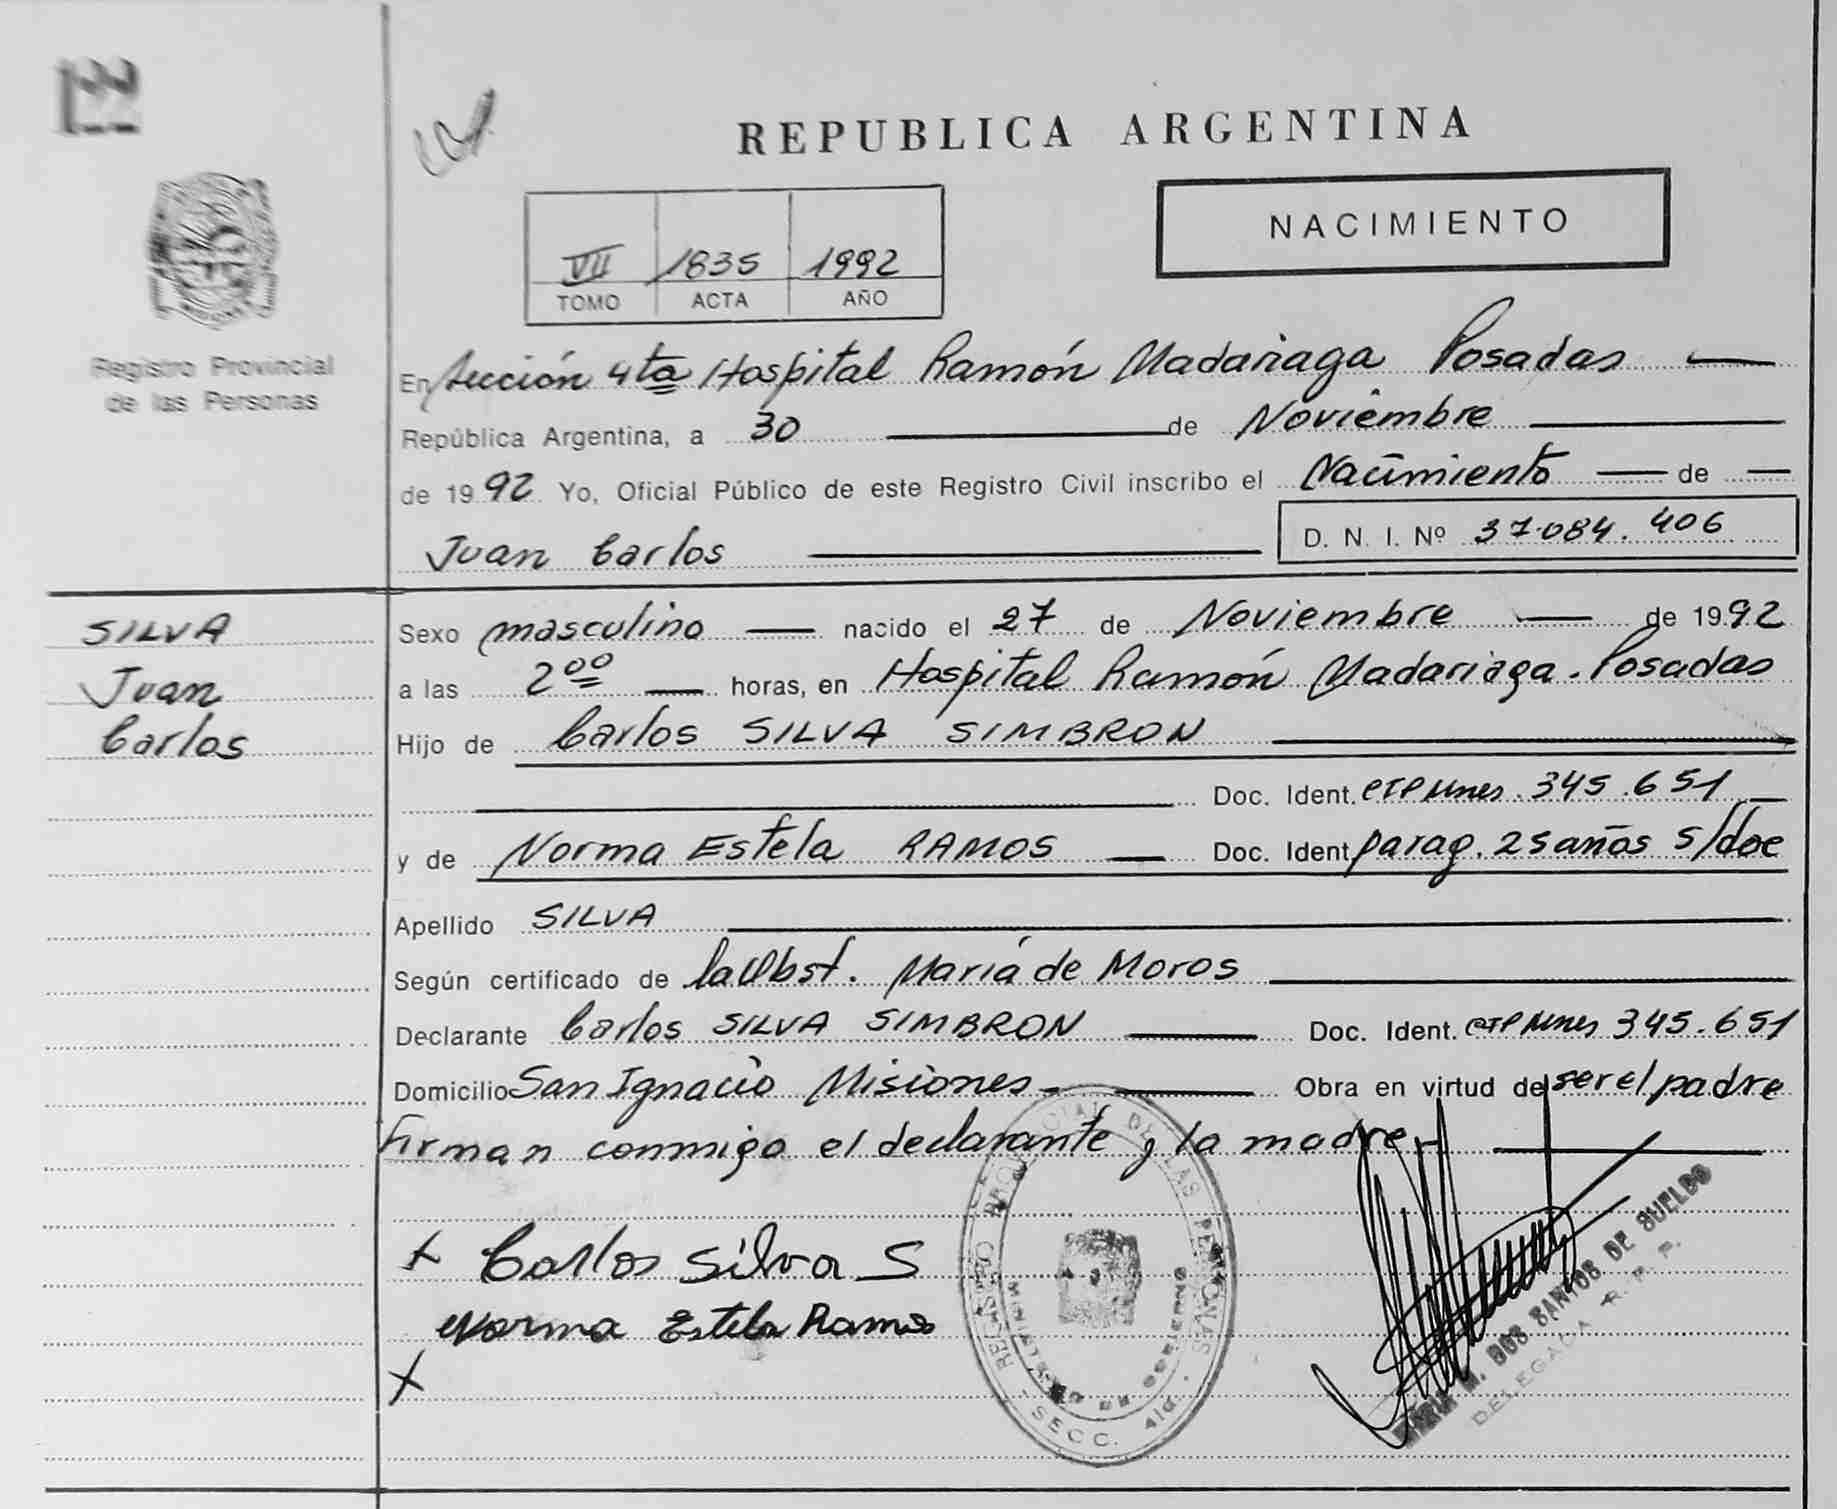 REPUBLICA ARGENTINA
NACIMIENTO
VII 1835 1992
TOMO ACTA AÑO
Registro Provincial
de las Personas
En Sección 4ta Hospital Ramón Madariaga Posadas
República Argentina, a 30 de Noviembre
de 1992 Yo, Oficial Público de este Registro Civil inscribo el Nacimiento de
Juan Carlos D. N. I. Nº 37.084.406
SILVA
Juan
Carlos
Sexo masculino nacido el 27 de Noviembre de 1992
a las 2 00 horas, en Hospital Ramón Madariaga. Posadas
Hijo de Carlos SILVA SIMBRON
Doc. Ident. CIP Mnes. 345.651
y de Norma Estela RAMOS Doc. Ident parag. 25 años s/doc
Apellido SILVA
Según certificado de la Obst. María de Moros
Declarante Carlos SILVA SIMBRON Doc. Ident. CIP Mnes 345.651
Domicilio San Ignacio Misiones Obra en virtud de ser el padre
Firman conmigo el declarante y la madre
+ Carlos Silva S
Norma Estela Ramos
+
REGISTRO PROVINCIAL DE LAS PERSONAS
MINISTERIO DE GOBIERNO
SECC. 4ta.
M. DOS SANTOS DE SUELDO
DELEGADA R. P. P.